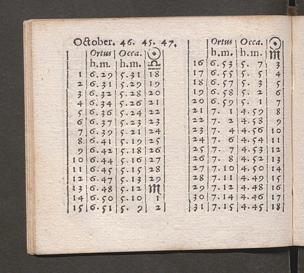 October. 46. 45. 47.
Ortus Occa. ☉
h.m. h.m. ♎
1 6.29 5.31 18
2 6.31 5.29 19
3 6.32 5.28 20
4 6.34 5.26 21
5 6.36 5.24 22
6 6.37 5.23 23
7 6.39 5.21 24
8 6.41 5.19 25
9 6.42 5.18 26
10 6.44 5.16 27
11 6.45 5.15 28
12 6.47 5.13 29
13 6.48 5.12 ♏
14 6.50 5.10 1
15 6.51 5. 9 2
Ortus Occa. ☉
h.m. h.m. ♏
16 6.53 5. 7 3
17 6.55 5. 5 4
18 6.57 5. 3 5
19 6.58 5. 2 6
20 6.59 5. 1 7
21 7. 1 4.59 8
22 7. 2 4.58 9
23 7. 4 4.56 10
24 7. 6 4.54 11
25 7. 7 4.53 12
26 7. 8 4.52 13
27 7.10 4.50 14
28 7.11 4.49 15
29 7.12 4.48 16
30 7.13 4.47 17
31 7.15 4.45 18